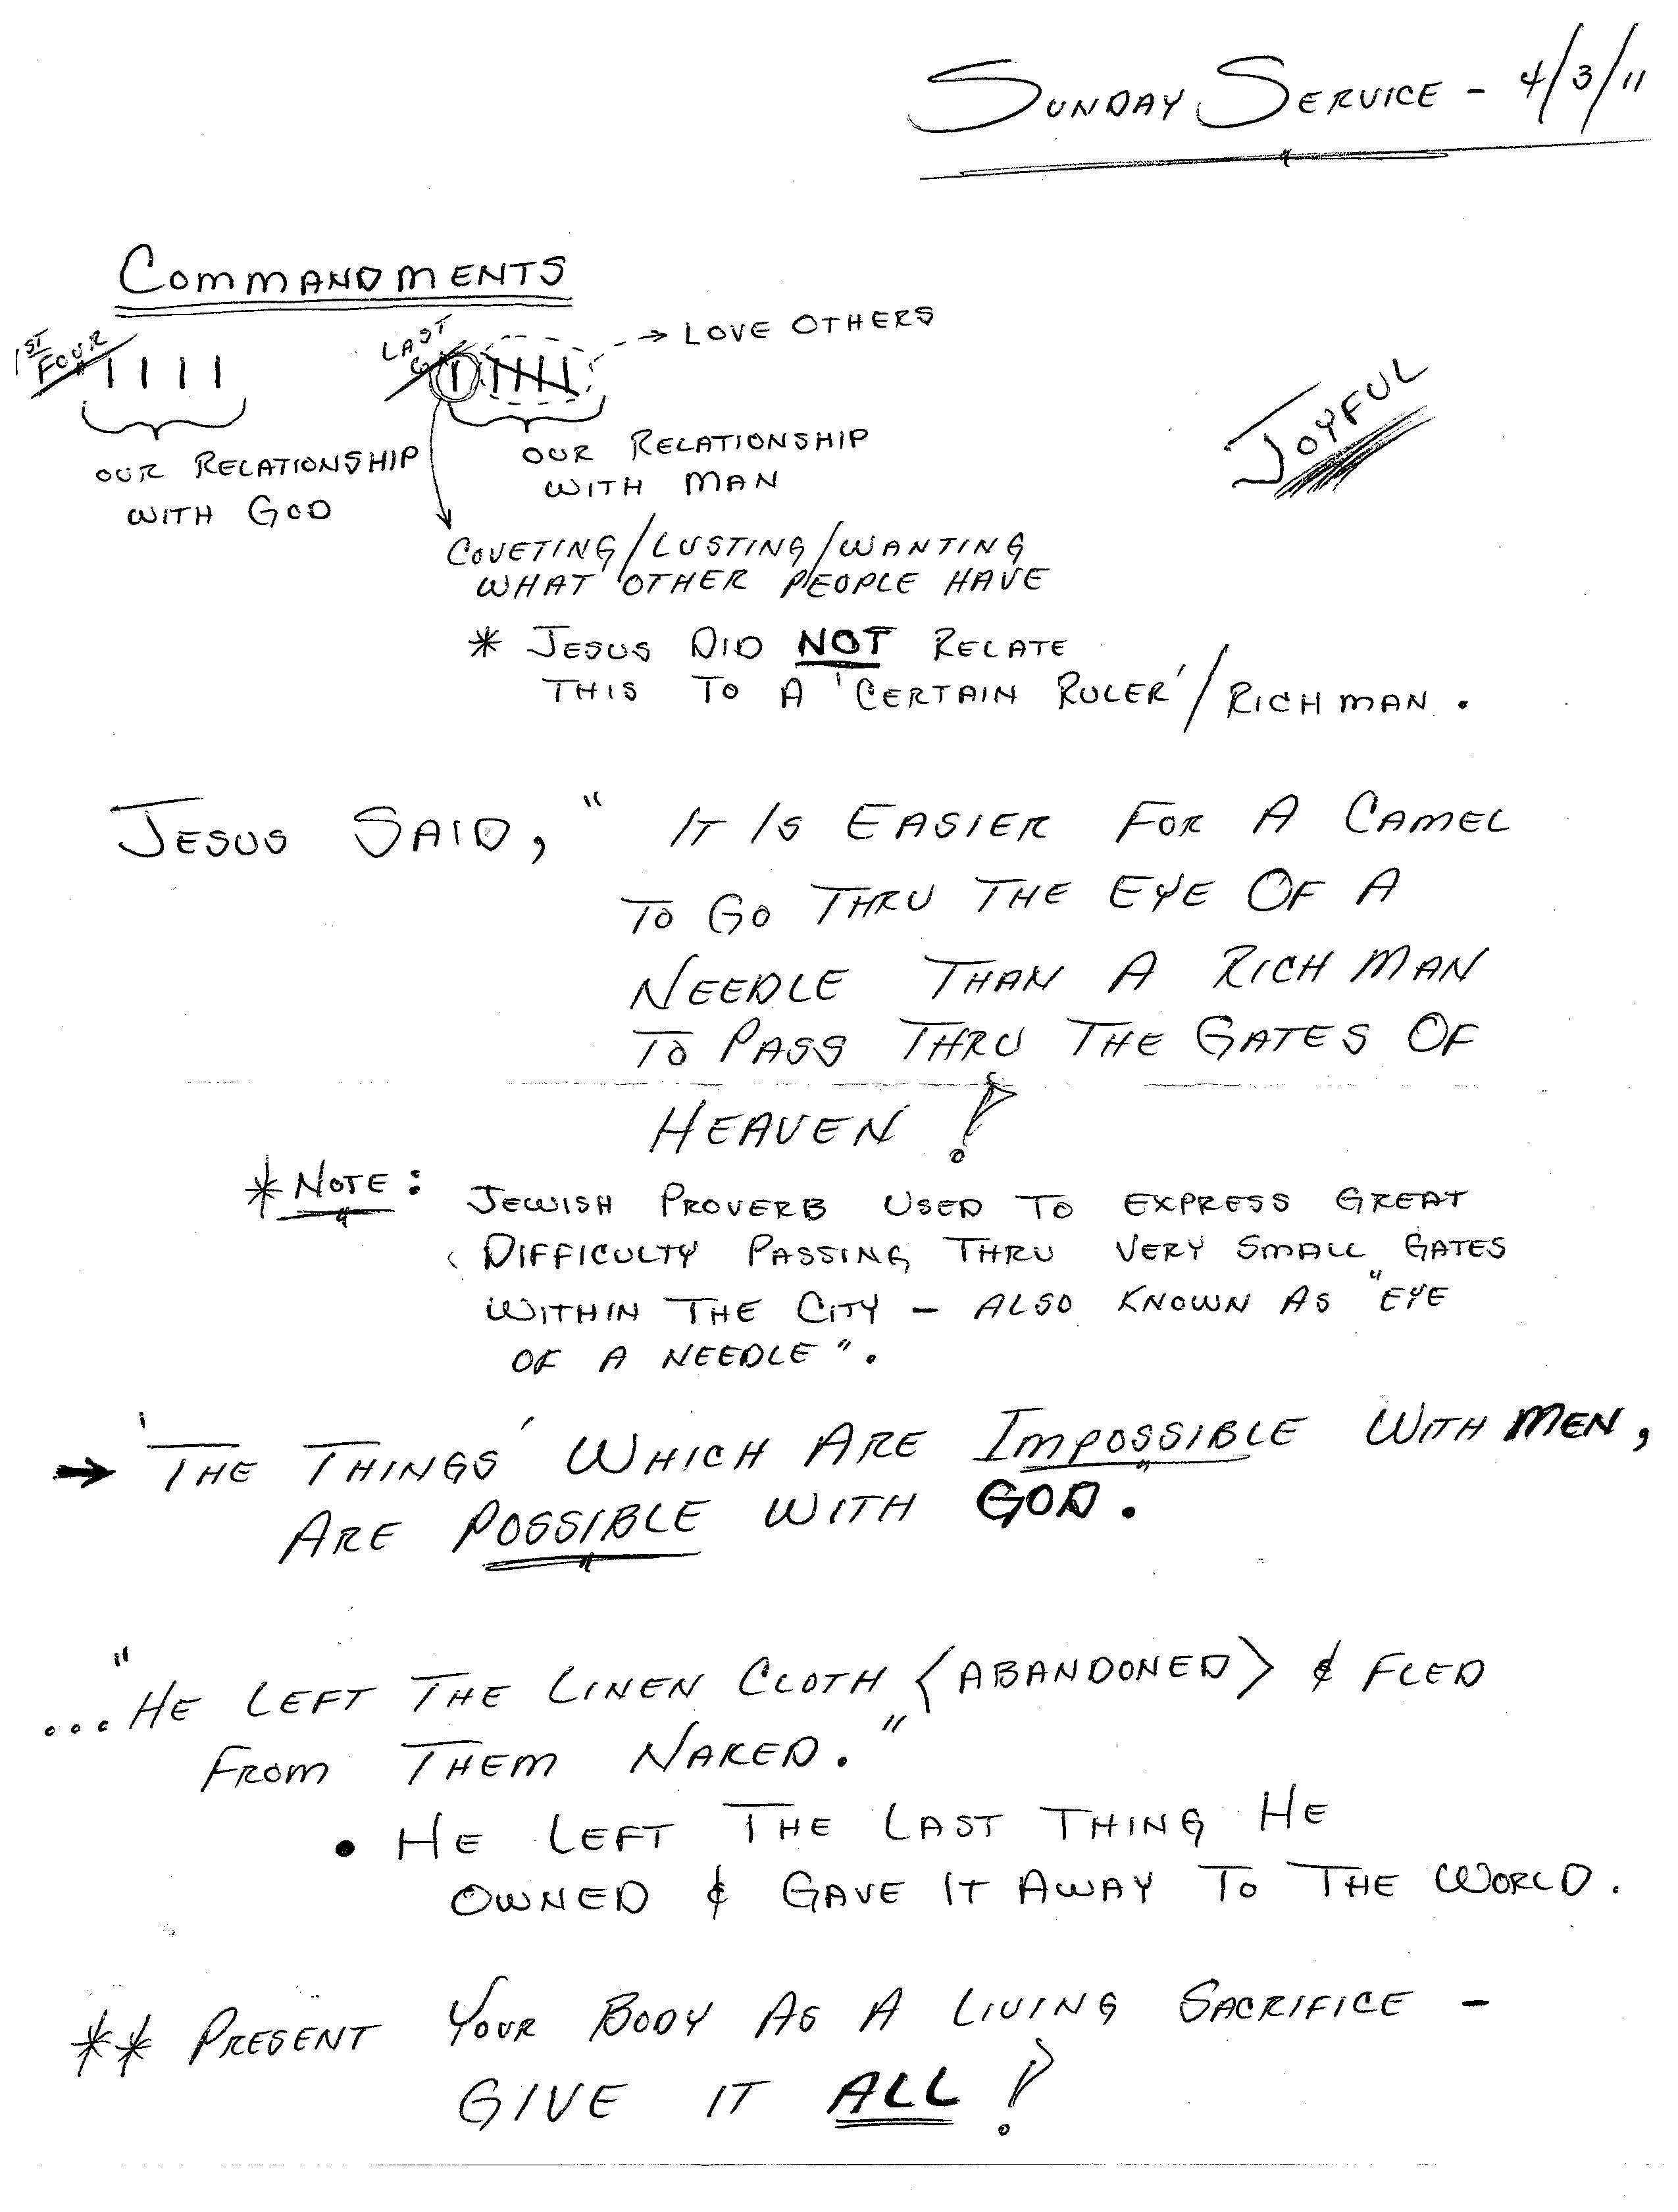 SUNDAY SERVICE - 4/3/11
COMMANDMENTS
1ST
FOUR
LAST
6
→ LOVE OTHERS
JOYFUL
OUR RELATIONSHIP
WITH GOD
OUR RELATIONSHIP
WITH MAN
COVETING/LUSTING/WANTING
WHAT OTHER PEOPLE HAVE
* JESUS DID NOT RELATE
THIS TO A 'CERTAIN RULER'/RICH MAN.
JESUS SAID, " IT IS EASIER FOR A CAMEL
TO GO THRU THE EYE OF A
NEEDLE THAN A RICH MAN
TO PASS THRU THE GATES OF
HEAVEN!
* NOTE: JEWISH PROVERB USED TO EXPRESS GREAT
DIFFICULTY PASSING THRU VERY SMALL GATES
WITHIN THE CITY - ALSO KNOWN AS "EYE
OF A NEEDLE".
→ 'THE THINGS' WHICH ARE IMPOSSIBLE WITH MEN,
ARE POSSIBLE WITH GOD.
..."HE LEFT THE LINEN CLOTH <ABANDONED> & FLED
FROM THEM NAKED."
• HE LEFT THE LAST THING HE
OWNED & GAVE IT AWAY TO THE WORLD.
** PRESENT YOUR BODY AS A LIVING SACRIFICE -
GIVE IT ALL!